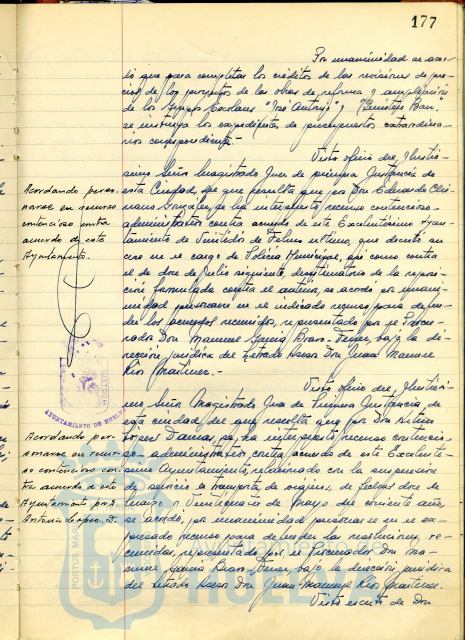 177
Por unanimidad se acor-
dó que para completar los créditos de las revisiones de pre-
cios de los proyectos de las obras de reforma y ampliación
de los Grupos Escolares "José Antonio" y
se instruya los expedientes de presupuestos extraordina-
rios correspondientes.-
Visto oficio del Ilustrí-
simo Señor Magistrado Juez de primera Instancia de
esta Ciudad, del que resulta que por Don Eduardo
González, se ha interpuesto recurso contencioso-
administrativo contra acuerdo de este Excelentísimo Ayun-
tamiento de Veintidós de Febrero último, que decretó su
cese en el cargo de Policía Municipal, así como contra
el de doce de Julio siguiente, desestimatorio de la reposi-
ción formulada contra el anterior, se acordó por unani-
midad personarse en el indicado recurso para defen-
der los acuerdos recurridos, representado por el Procu-
rador Don Manuel García Bravo-Ferrer, bajo la di-
rección jurídica del Letrado Asesor Don Juan Manuel
Ríos Martínez.-
Acordando perso-
narse en recurso
contencioso contra
acuerdo de este
Ayuntamiento.
Visto oficio del Ilustrísi-
mo Señor Magistrado Juez de Primera Instancia de
esta ciudad del que resulta que por Don
López Damas, se ha interpuesto recurso contencio-
so-administrativo, contra acuerdo de este Excelentí-
simo Ayuntamiento, relacionado con la suspensión
de servicio de transporte de viajeros, de fechas doce de
y Veintisiete de Mayo del corriente año,
se acordó, por unanimidad personarse en el ex-
presado recurso para defender las resoluciones re-
curridas, representado por el Procurador Don Ma-
nuel García Bravo-Ferrer, bajo la dirección jurídica
del Letrado Asesor Don Juan Manuel Ríos Martínez.
Visto escrito de Don
Acordando per-
sonarse en recur-
so contencioso con-
tra acuerdo de este
Ayuntamiento por D.
Antonio López D.
AYUNTAMIENTO DE HUELVA
PORTUS MARIS